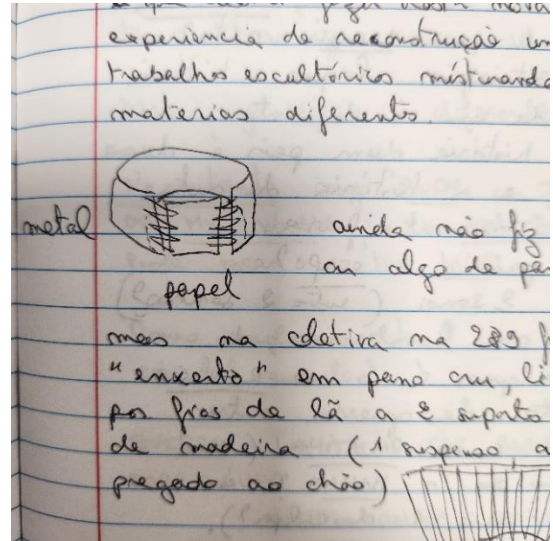 experiencia de reconstrução
trabalhos escultóricos misturando
materias diferentes.
metal
ainda não fiz
papel
ou algo de
mas na coletiva na 289
"enxerto" em pano cru,
por fios de lã a 2 suporte
de madeira (1 suspenso,
pregado ao chão)